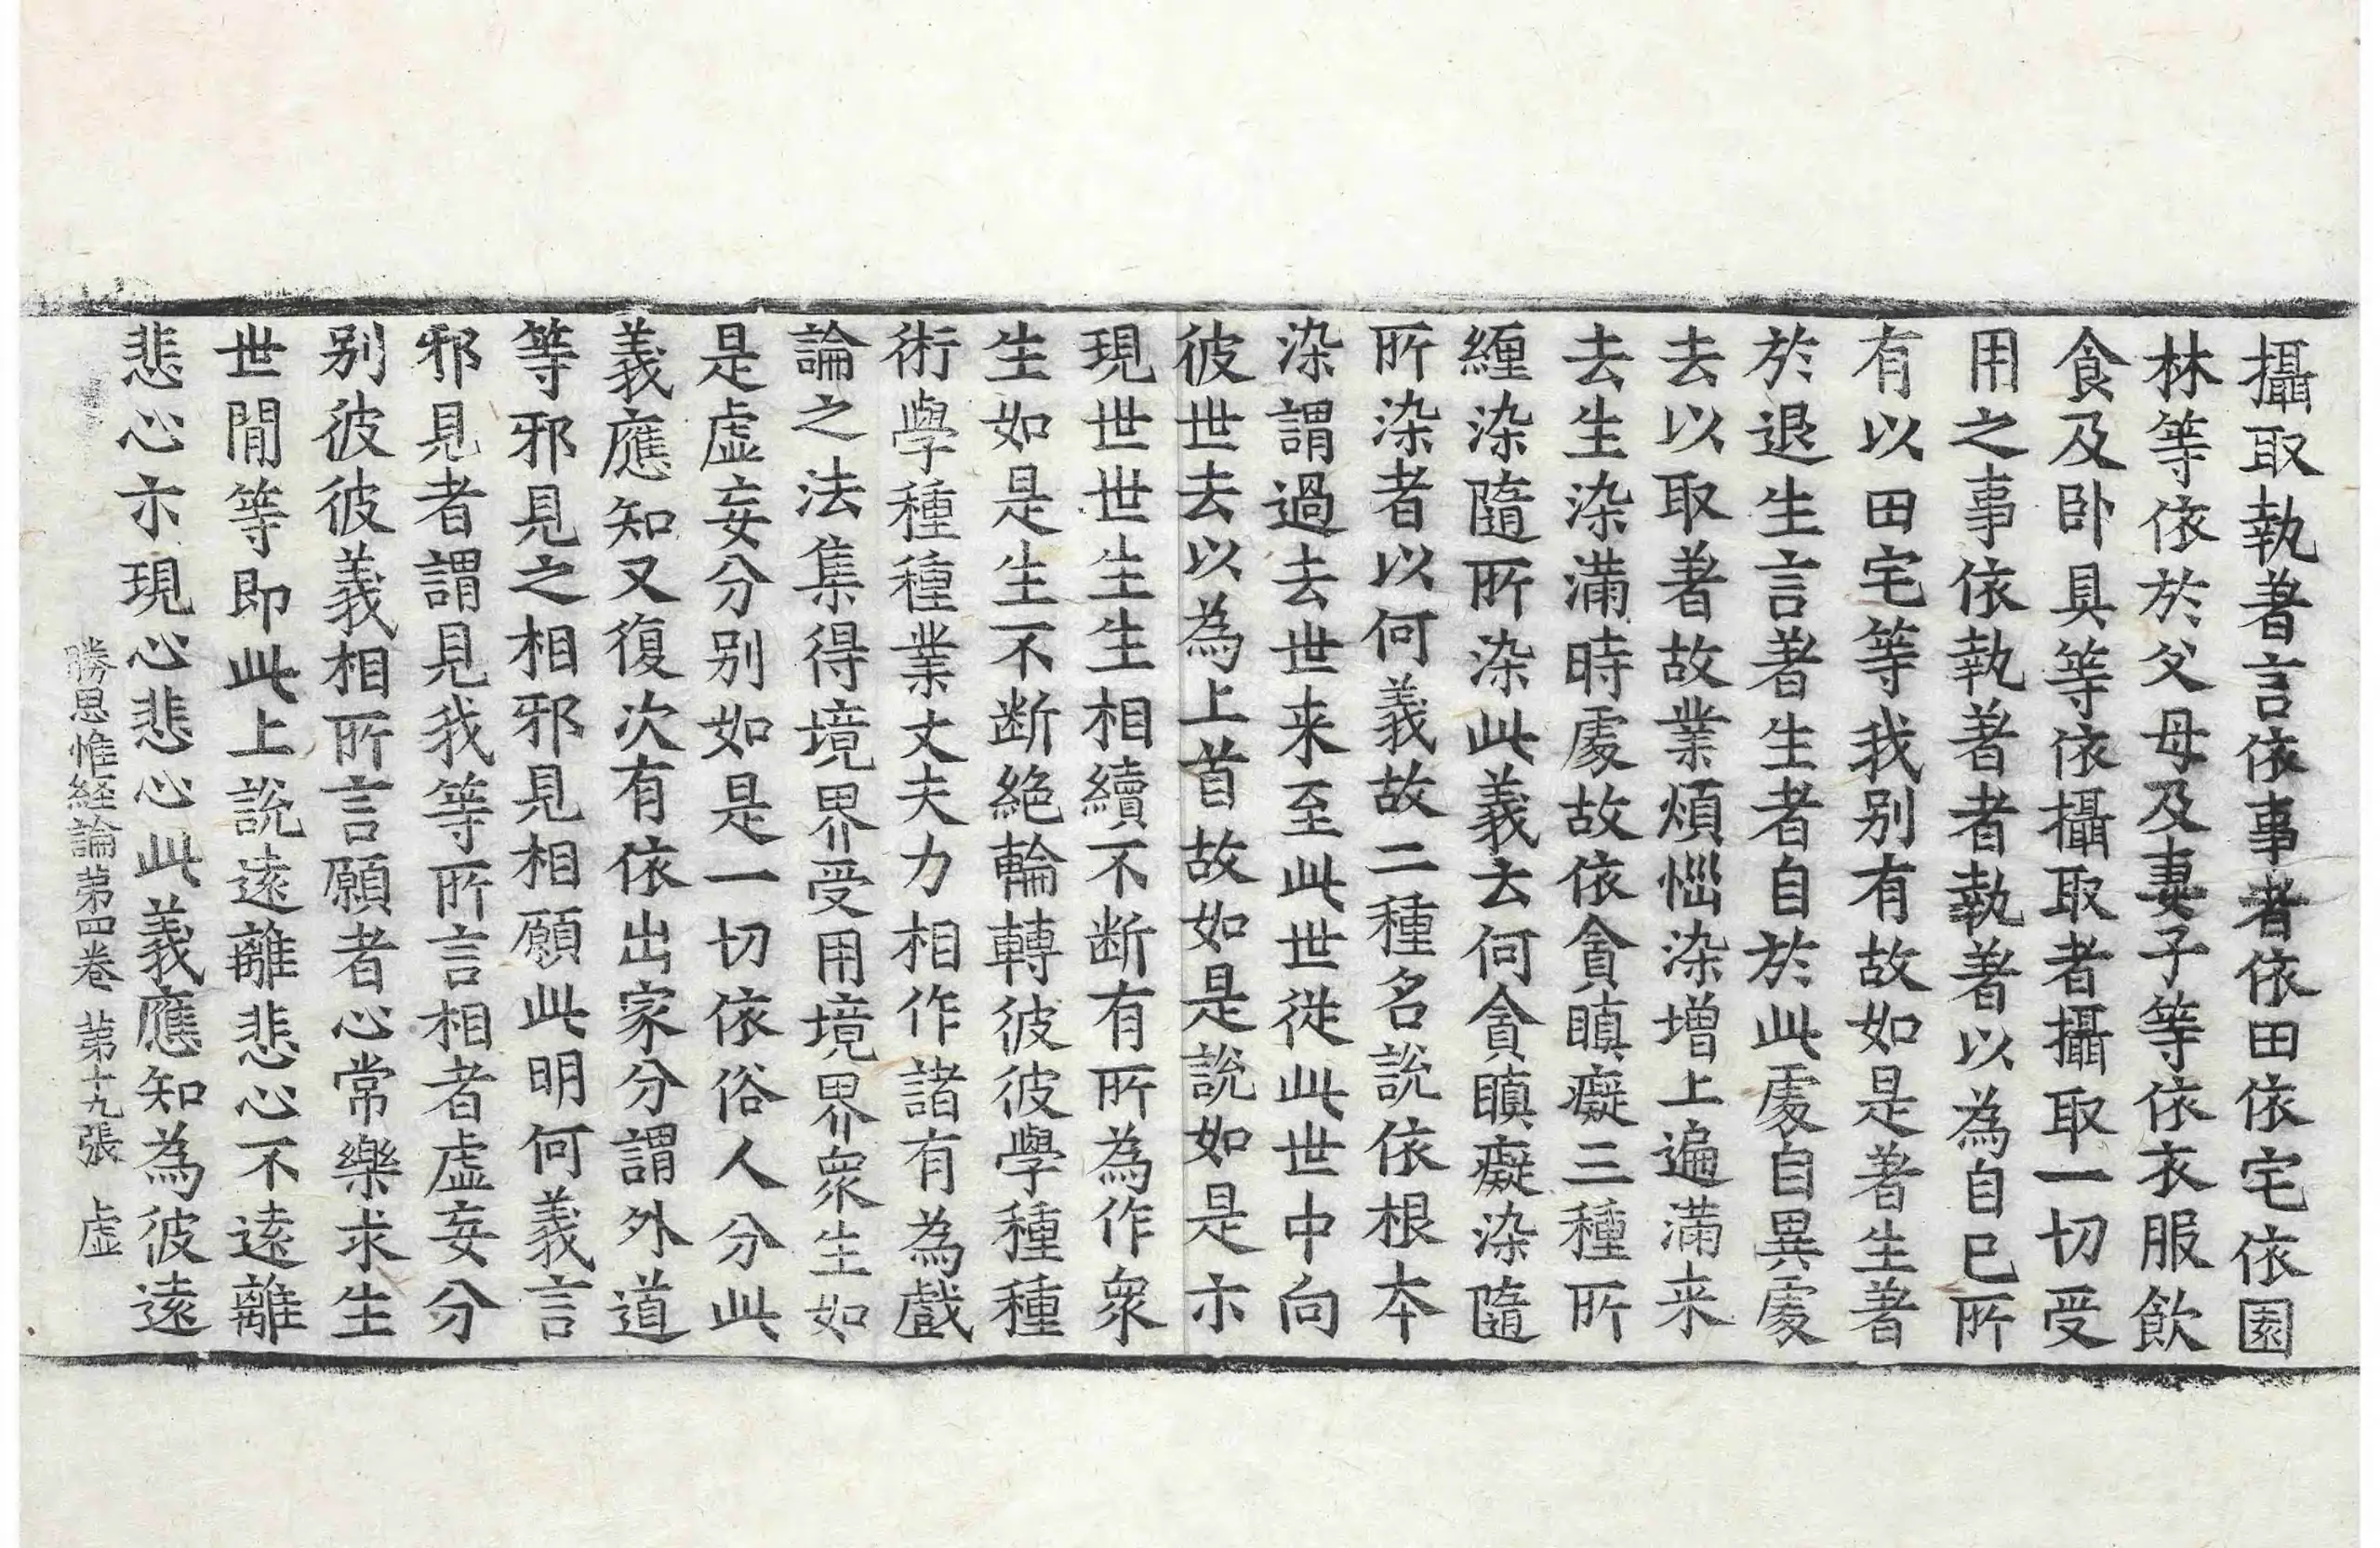 攝取執著言依事者依田依宅依園
林等依於父母及妻子等依衣服飲
食及卧具等依攝取者攝取一切受
用之事依執著者執著以為自已所
有以田宅等我别有故如是著生著
於退生言著生者自於此處自異處
去以取著故業煩惱染增上遍滿来
去生染滿時處故依貪瞋癡三種所
纏染隨所染此義去何貪瞋癡染隨
所染者以何義故二種名說依根本
染謂過去世来至此世從此世中向
彼世去以為上首故如是說如是亦
現世世生生相續不断有所為作衆
生如是生不断絶輪轉彼彼學種種
術學種種業丈夫力相作諸有為戲
論之法集得境界受用境界衆生如
是虛妄分别如是一切依俗人分此
義應知又復次有依出家分謂外道
等邪見之相邪見相願此明何義言
邪見者謂見我等所言相者虛妄分
别彼彼義相所言願者心常樂求生
世間等即此上說遠離悲心不遠離
悲心亦現心悲心此義應知為彼遠
勝思惟経論第四卷 第十九張 虛